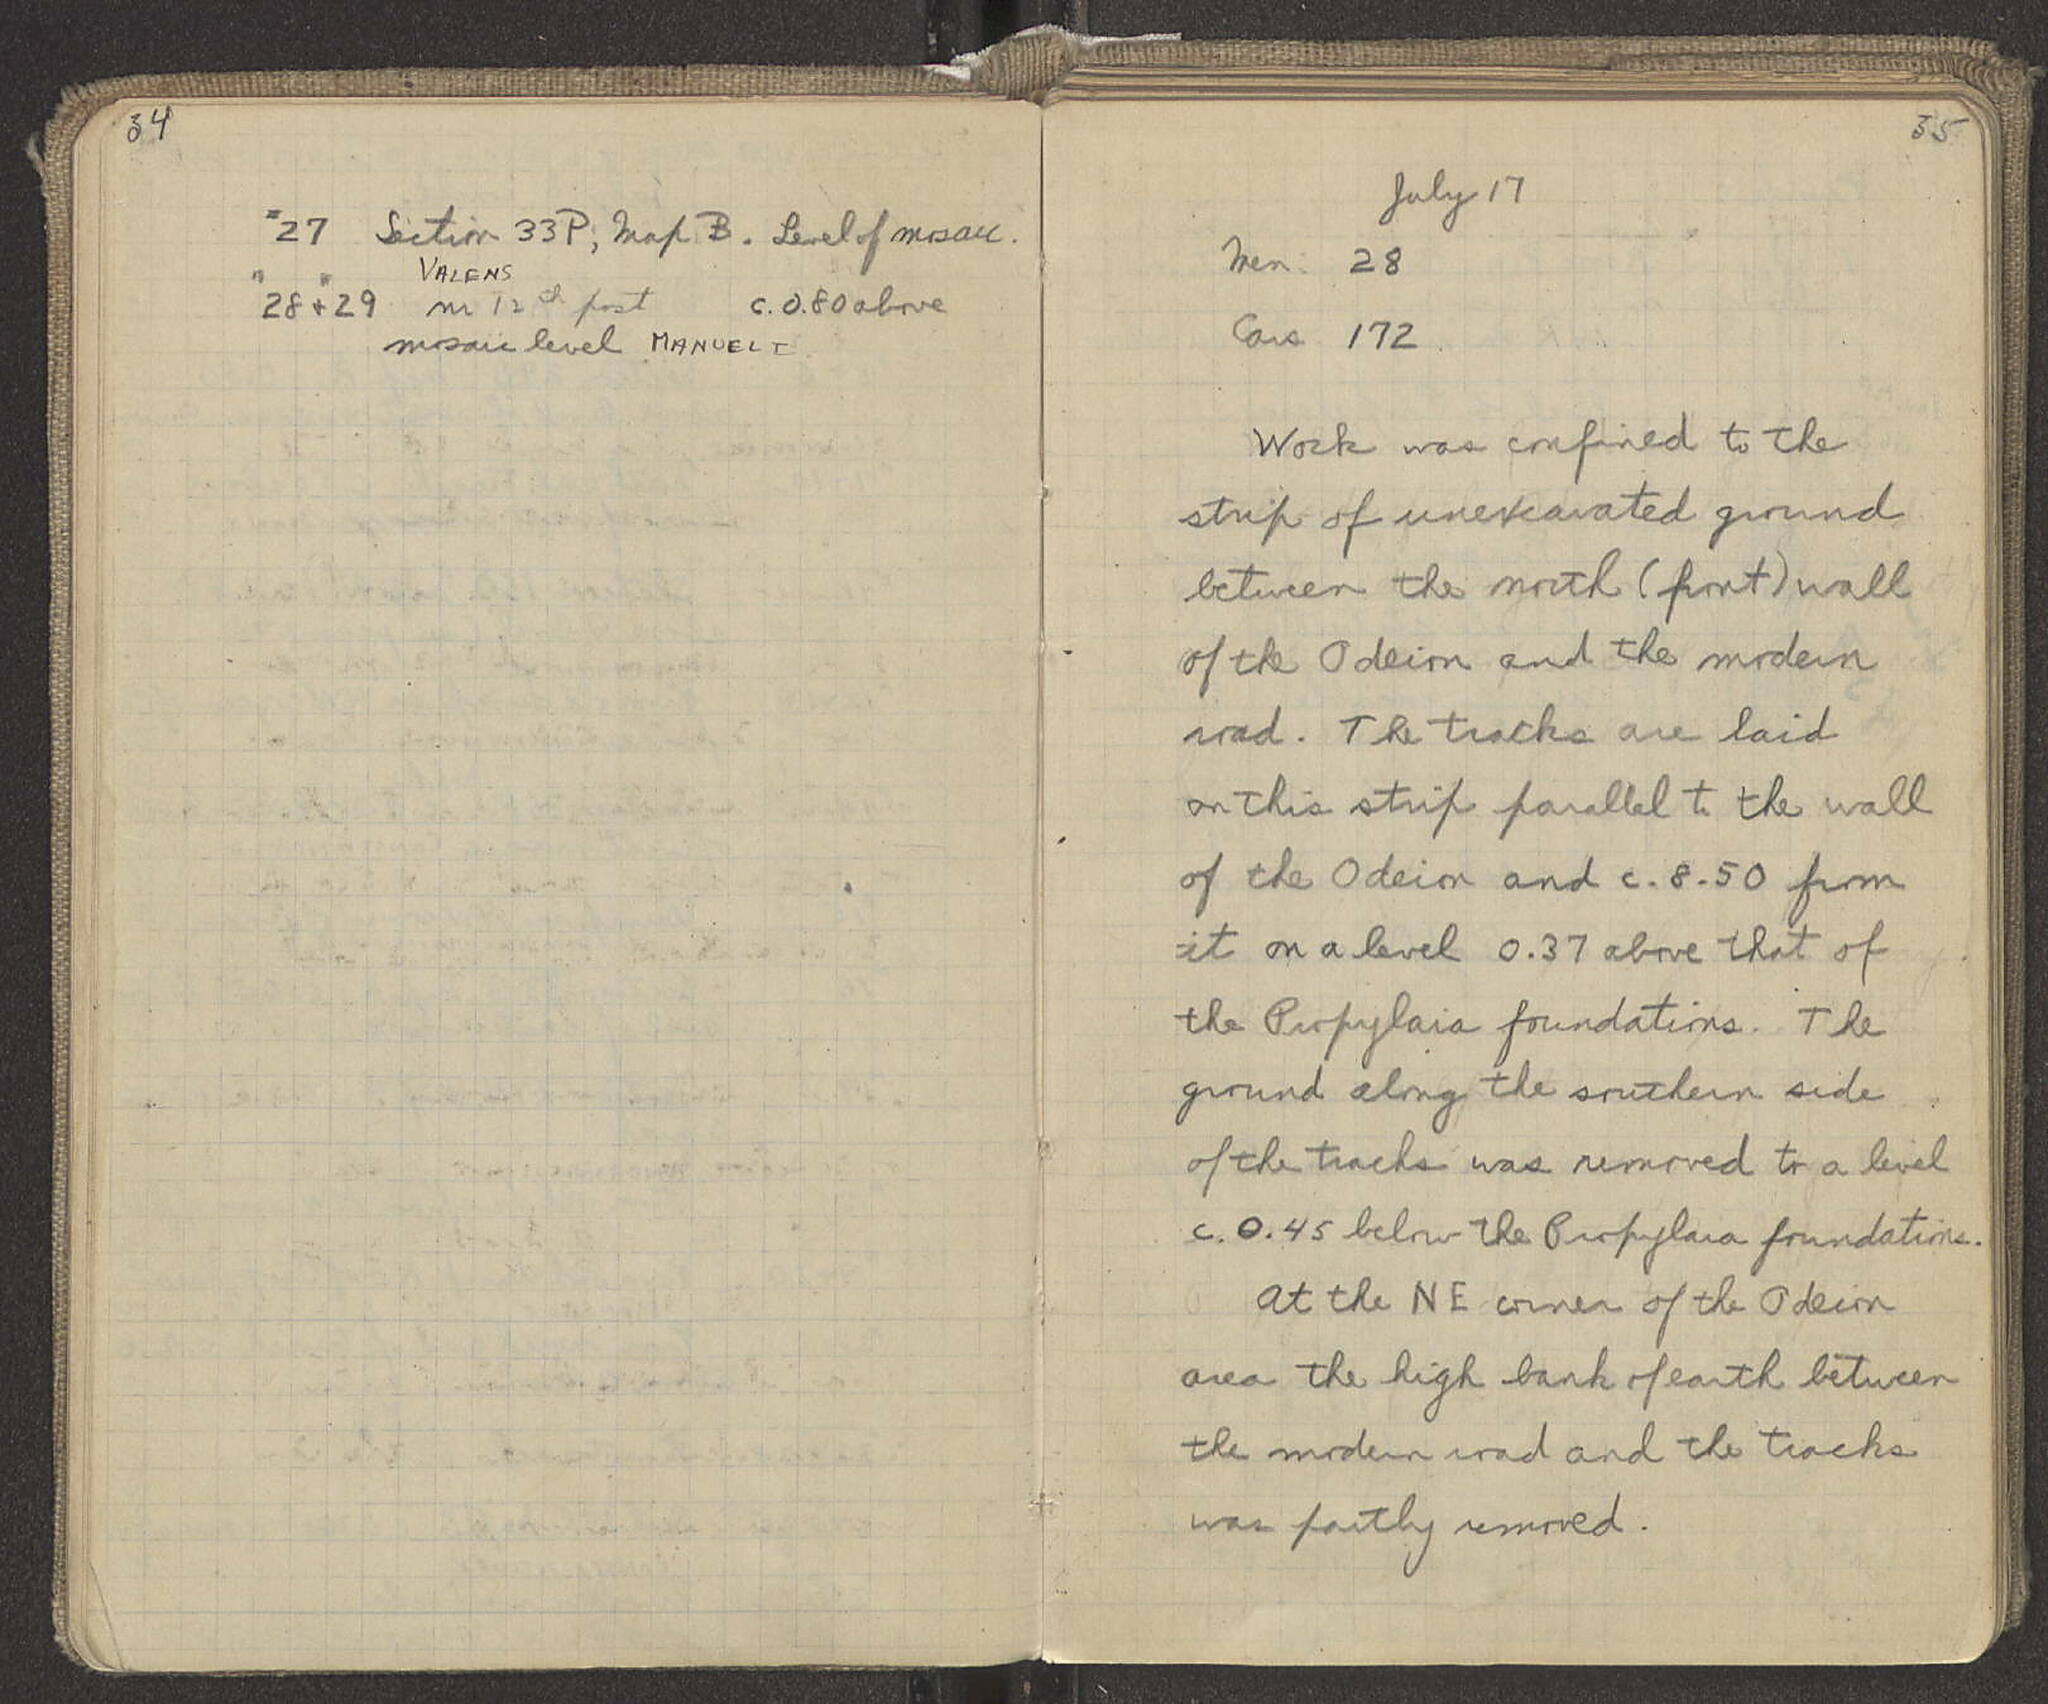 34
#27 Section 33P, Map B. Level of mosaic.
VALENS
"28 + "29 nr 12th post c. 0.80 above
mosaic level MANUEL I
35
July 17
Men: 28
Cars 172
Work was confined to the
strip of unexcavated ground
between the north (front) wall
of the Odeion and the modern
road. The tracks are laid
on this strip parallel to the wall
of the Odeion and c. 8.50 from
it on a level 0.37 above that of
the Propylaia foundations. The
ground along the southern side
of the tracks was removed to a level
c. 0.45 below the Propylaia foundations.
At the NE corner of the Odeion
area the high bank of earth between
the modern road and the tracks
was partly removed.